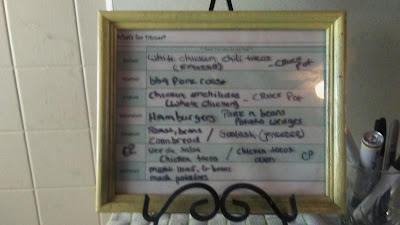 What's for Dinner?
White chicken chili tacos - Crock
(Freezer) Pot
BBQ Pork roast
Chicken enchiladas - Crock Pot
(White Chicken)
Hamburgers Pork n beans
Potato wedges
Roast, beans / Goulash (freezer)
Cornbread
CP Verde salsa / chicken tacos CP
Chicken tacos oven
meat loaf, G beans
mash potatoes